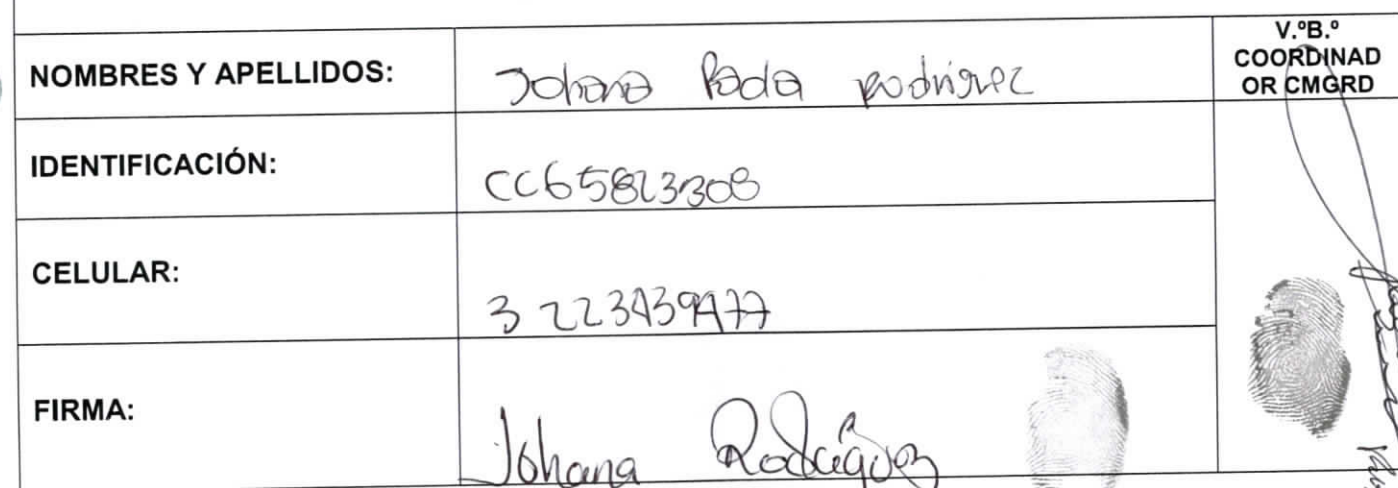 NOMBRES Y APELLIDOS: Johana Rodriguez
V.ºB.º
COORDINAD
OR CMGRD
IDENTIFICACIÓN: CC65823308
CELULAR:
FIRMA: Johana Rodríguez